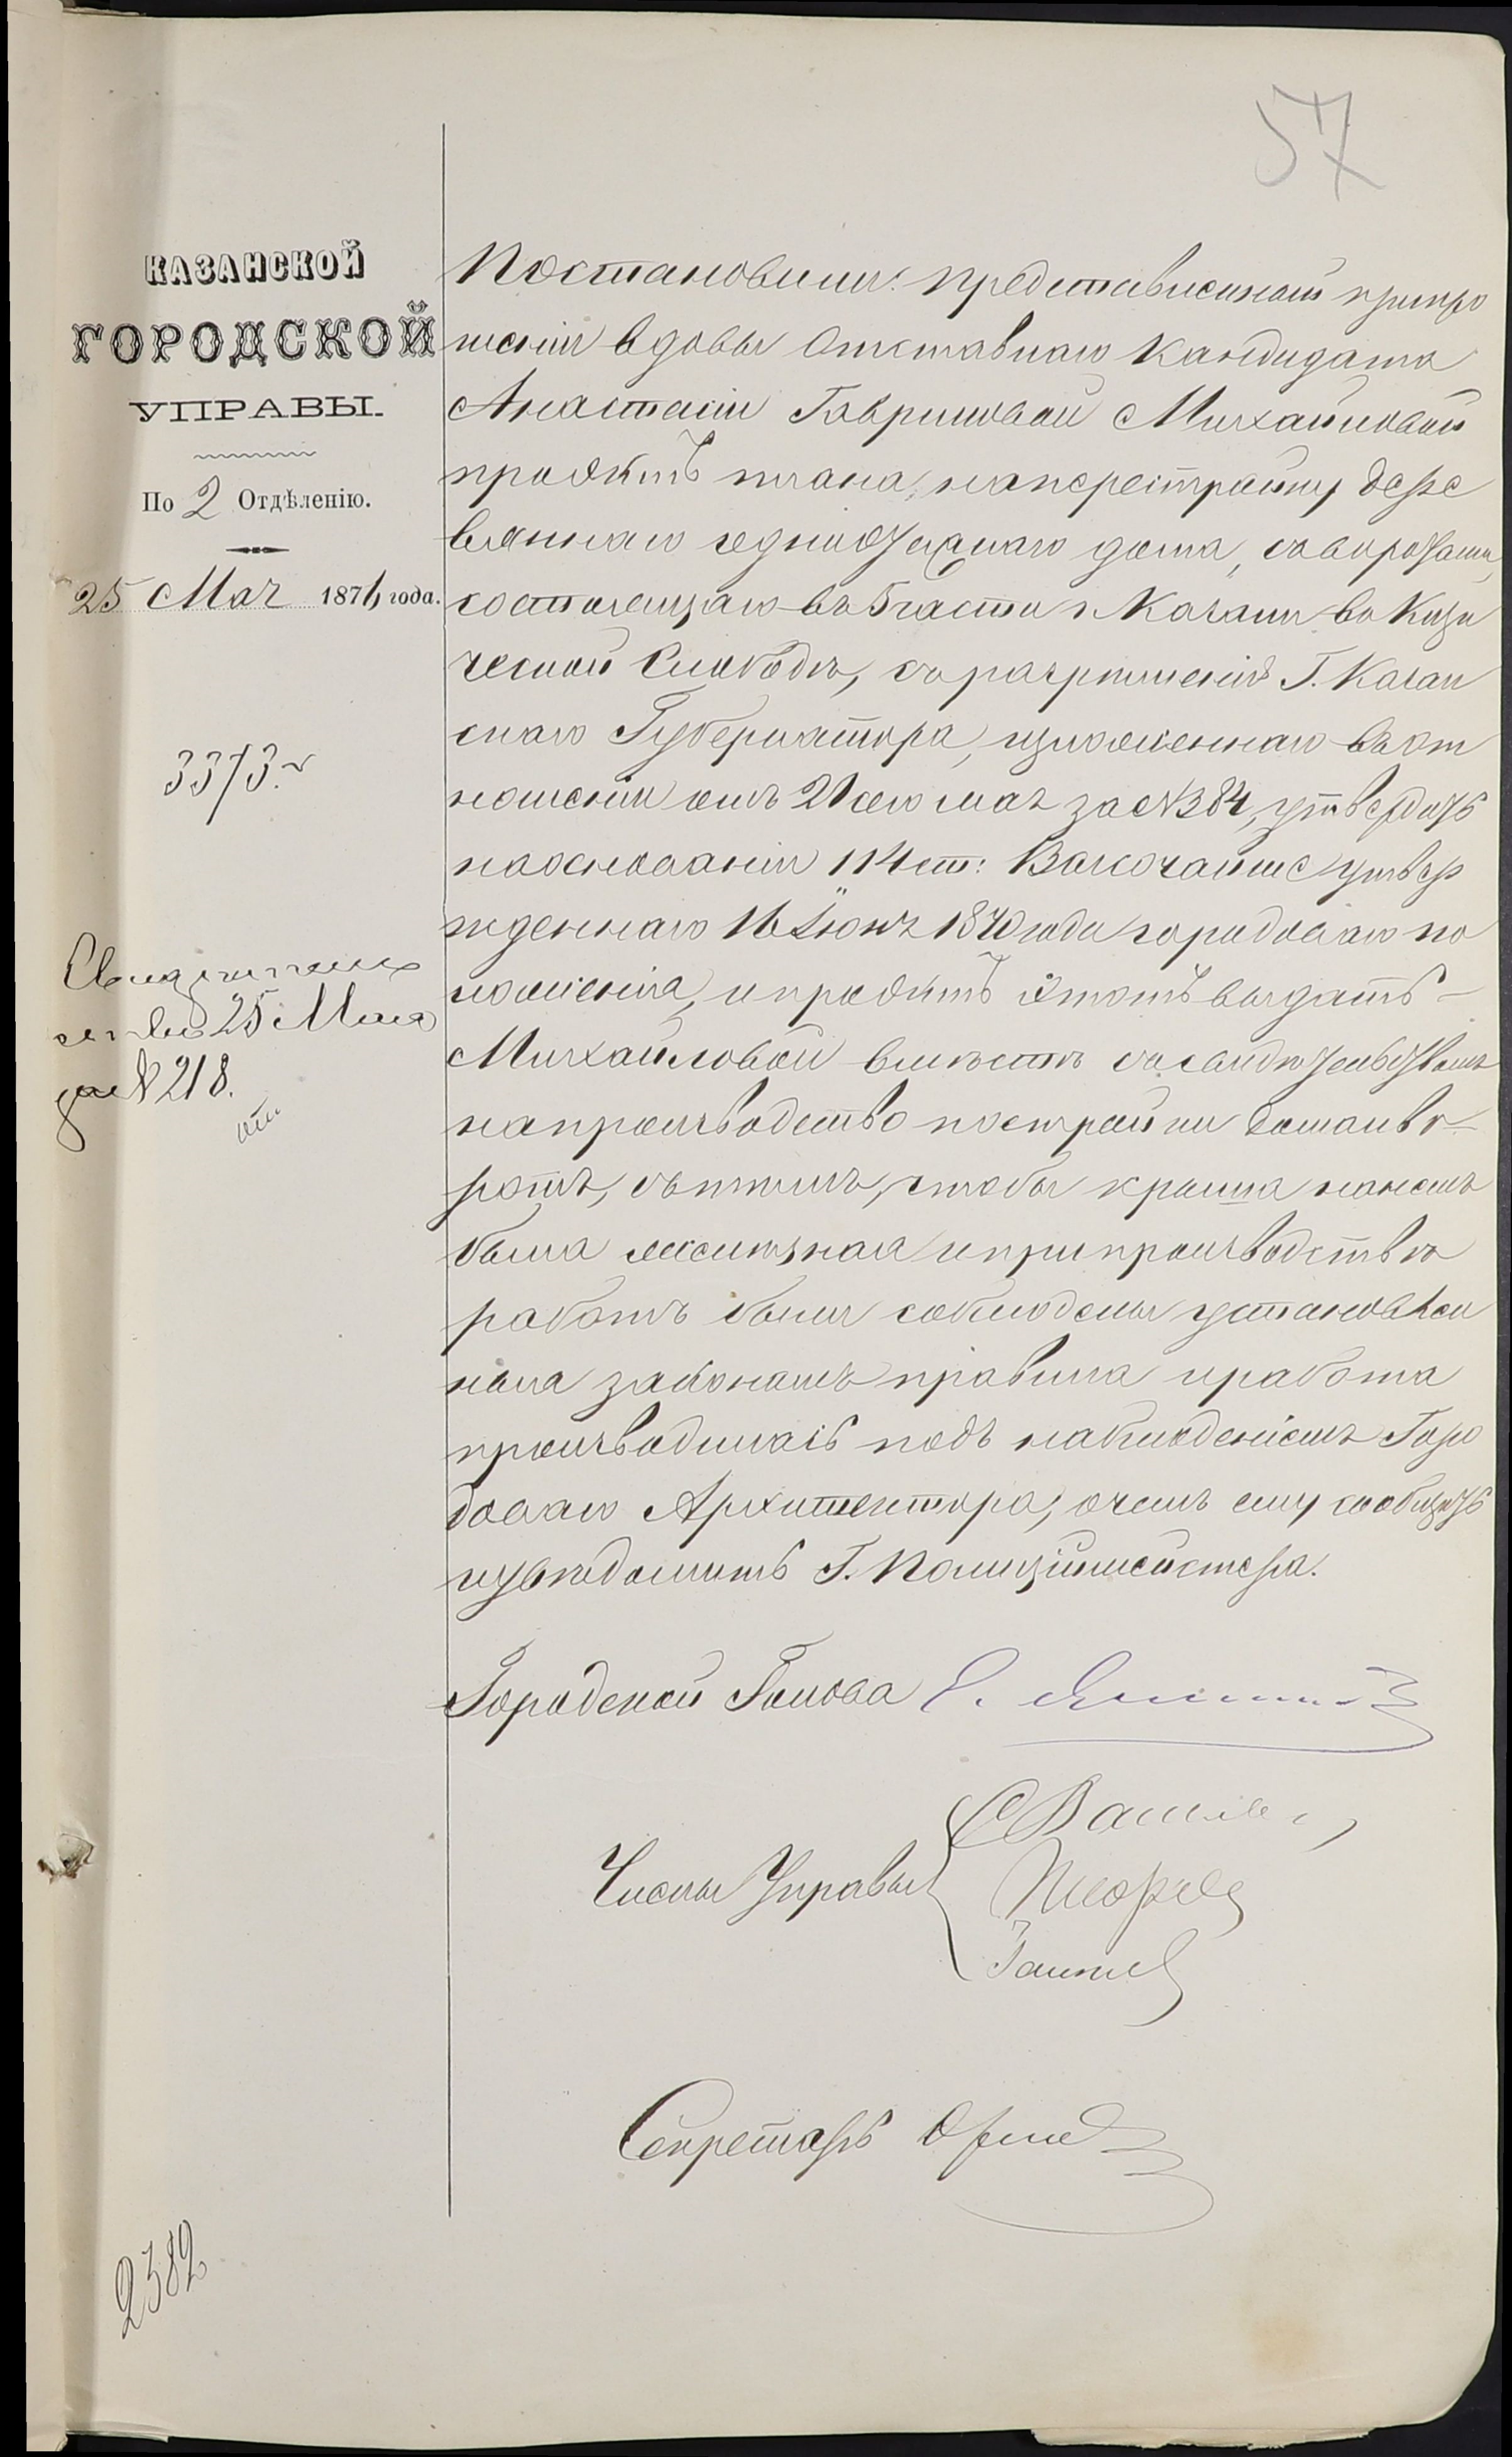 57
КАЗАНСКОЙ
ГОРОДСКОЙ
УПРАВЫ.
По 2 Отдѣленію.
25 Мая 1876 года.
3373.
25 Мая
за № 218.
Постановили: представленный припро
шеніи вдовы отставнаго Кандидата
Анастасіи Гавриловой Михайловой
проэктъ плана, наперестройку дере
вяннаго одноэтажнаго дома, съворотами,
состоящаго въ 5 части г. Казани въ Кизи
ческой Слободѣ, съ разрѣшенія Г. Казан
скаго Губернатора, изложеннаго въ от
ношеніи отъ 21 сего мая за № 384, утвердить
наоснованіи 114 ст: Высочайше утвер
жденнаго 16 Іюня 1870 года городоваго по
ложенія, и проэктъ этотъ выдать
Михайловой вмѣстѣ со свидѣтельствомъ
напроизводство постройки дома и во-
ротъ, съ тѣмъ, чтобы крыша на немъ
была желѣзная и при производствѣ
работъ были соблюдены установлен
ныя закономъ правила и работа
производилась подъ наблюденіемъ Горо
доваго Архитектора, о чемъ ему сообщить
и увѣдомить Г. Полиціймейстера.
Городской Голова
Члены Управы
Секретарь
2382